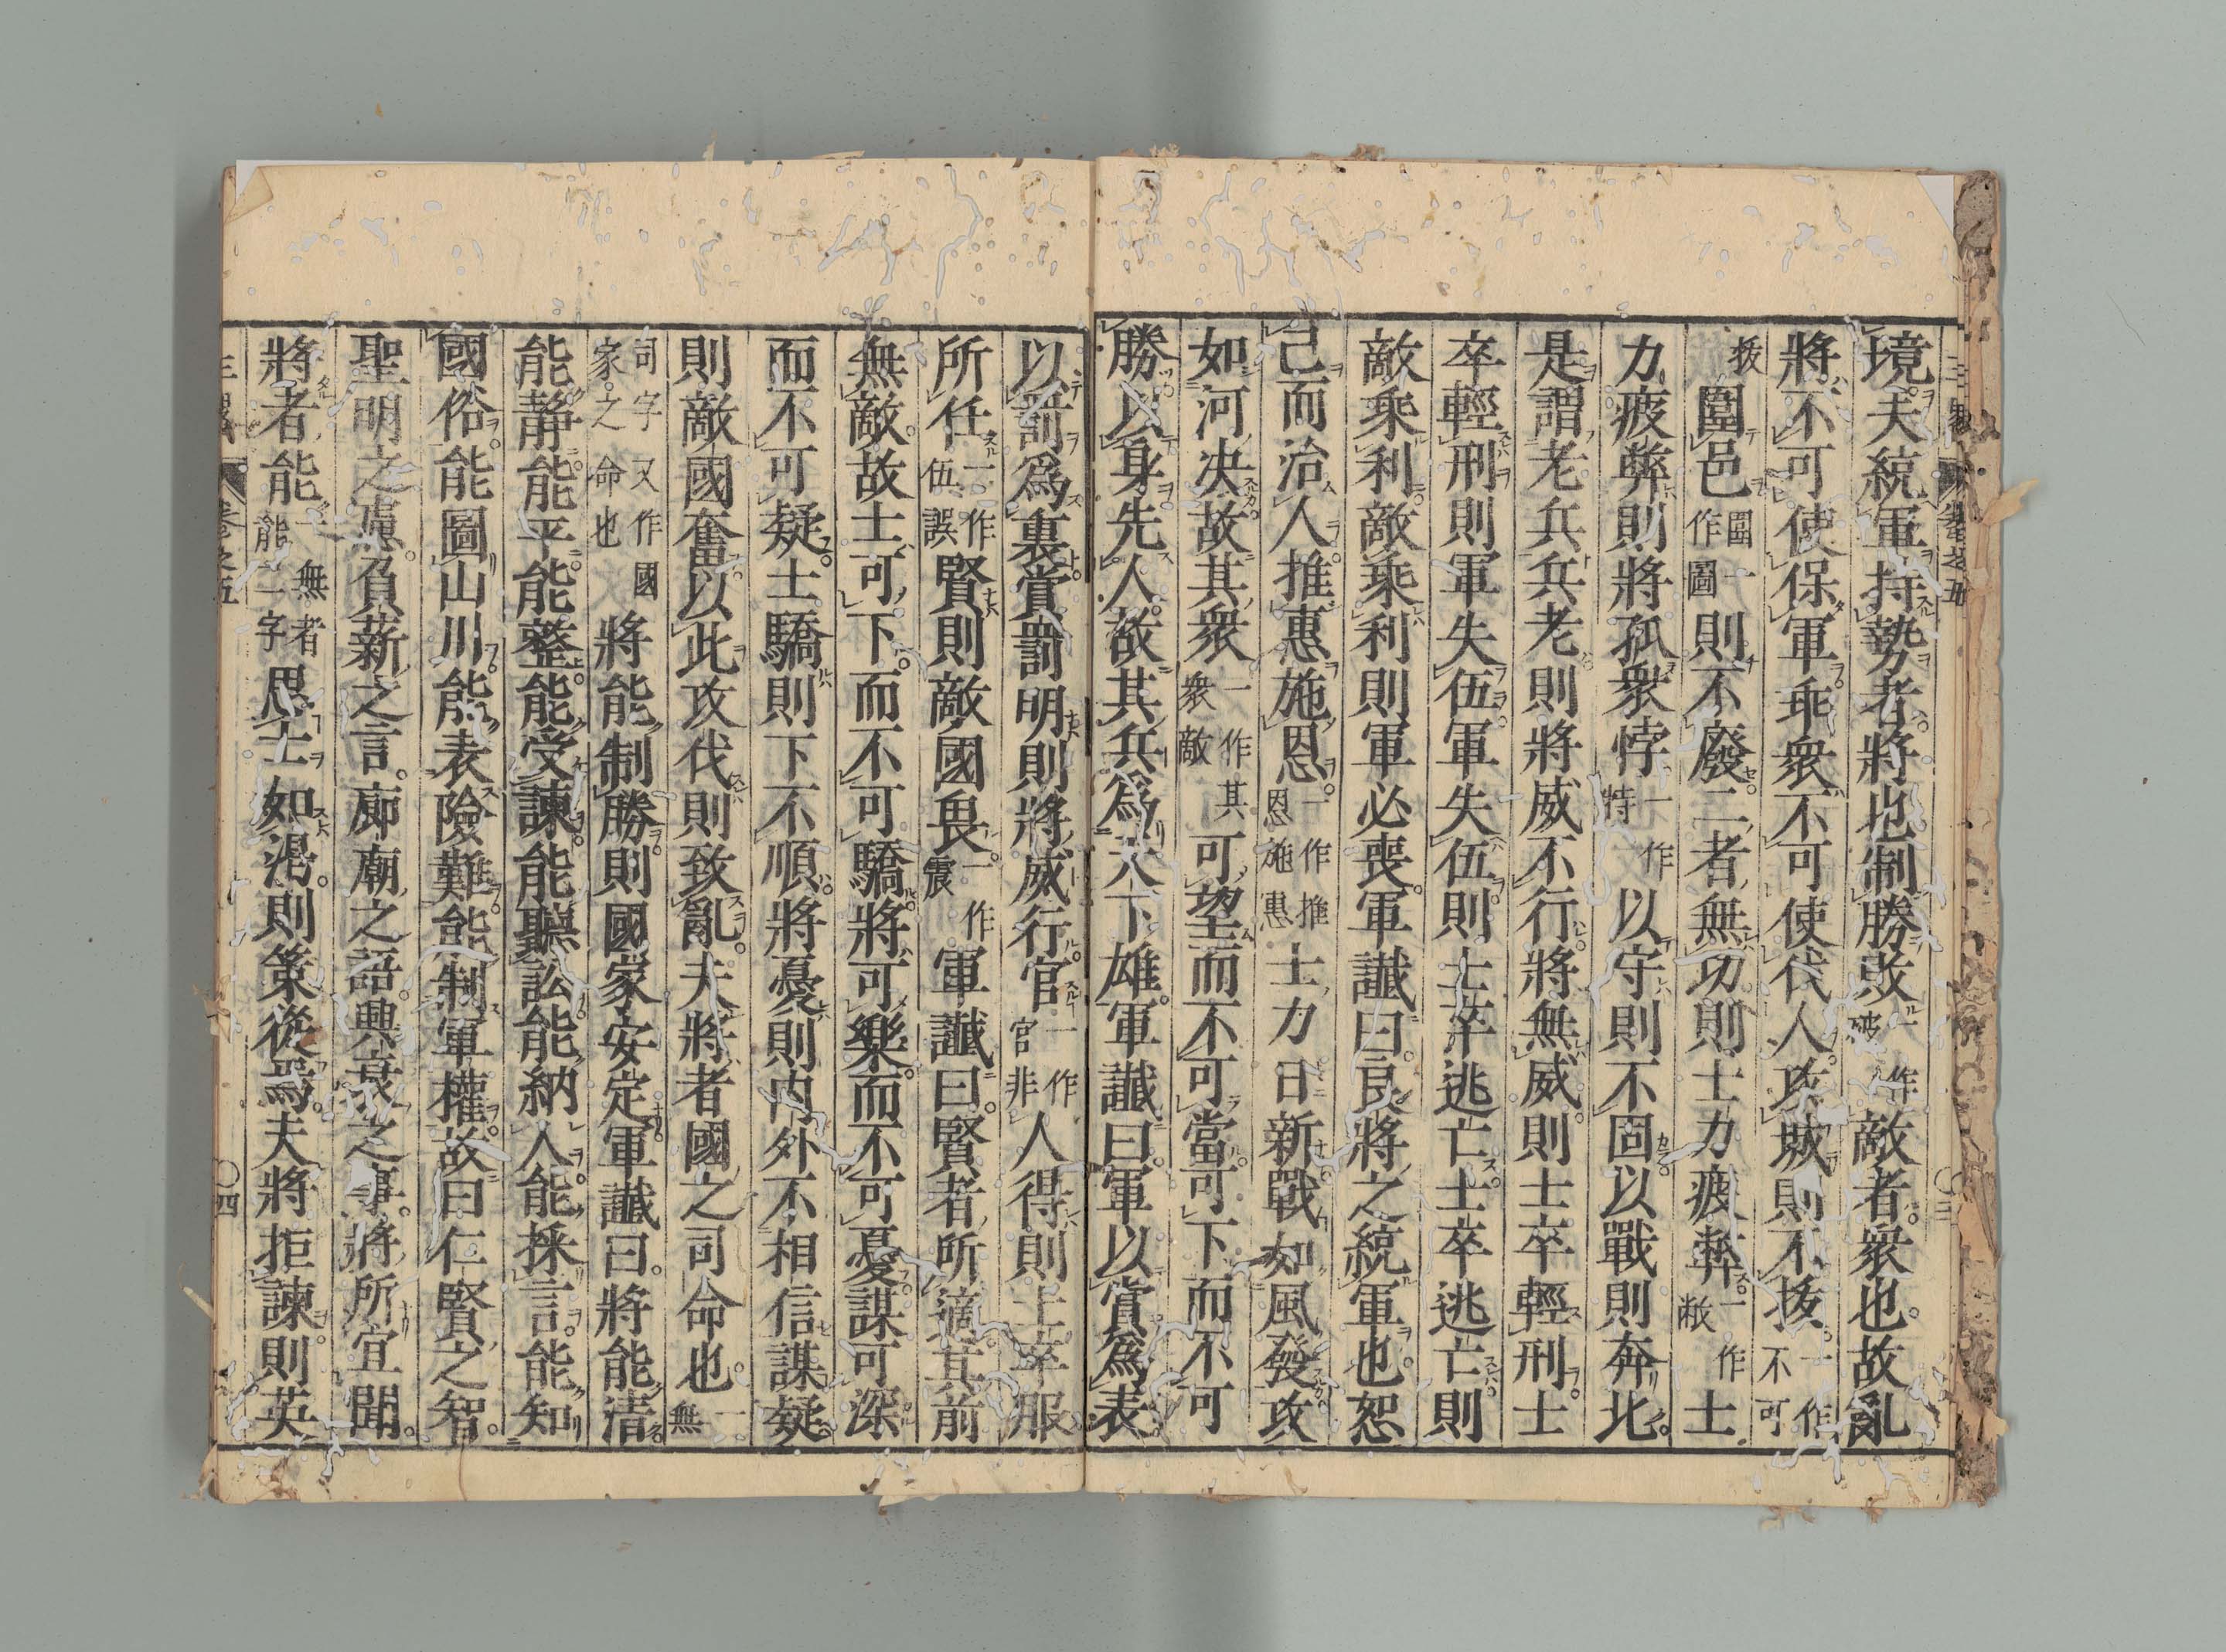 境夫統軍持勢者將也制勝敗一作破敵者衆也故亂
將不可使保軍乖衆不可使伐人攻城則不拔一作不可
拔圍邑圍一作圖則不廢二者無功則士力疲弊一作敝士
力疲弊則將孤衆悖一作特以守則不固以戰則奔北
是謂老兵兵老則將威不行將無威則士卒輕刑士
卒輕刑則軍失伍軍失伍則士卒逃亡士卒逃亡則
敵乘利敵乘利則軍必喪軍讖曰良將之統軍也恕
己而治人推惠施恩一作推恩施惠士力日新戰如風發攻
如河決故其衆一作其衆敵可望而不可當可下而不可
勝以身先人故其兵爲天下雄軍讖曰軍以賞爲表
以罰爲裏賞罰明則將威行官一作官非人得則士卒服
所任一作伍誤賢則敵國畏一作震軍讖曰賢者所適其前
無敵故士可下而不可驕將可樂而不可憂謀可深
而不可疑士驕則下不順將憂則内外不相信謀疑
則敵國奮以此攻伐則致亂夫將者國之司命也一無
司字又作國家之命也將能制勝則國家安定軍讖曰將能清
能靜能平能整能受諫能聽訟能納人能採言能知
國俗能圖山川能表險難能制軍權故曰仁賢之智
聖明之慮負薪之言廊廟之語興衰之事將所宜聞
將者能一無者能二字思士如渇則策從焉夫將拒諫則英
三畧
卷之五
〇三
〇四